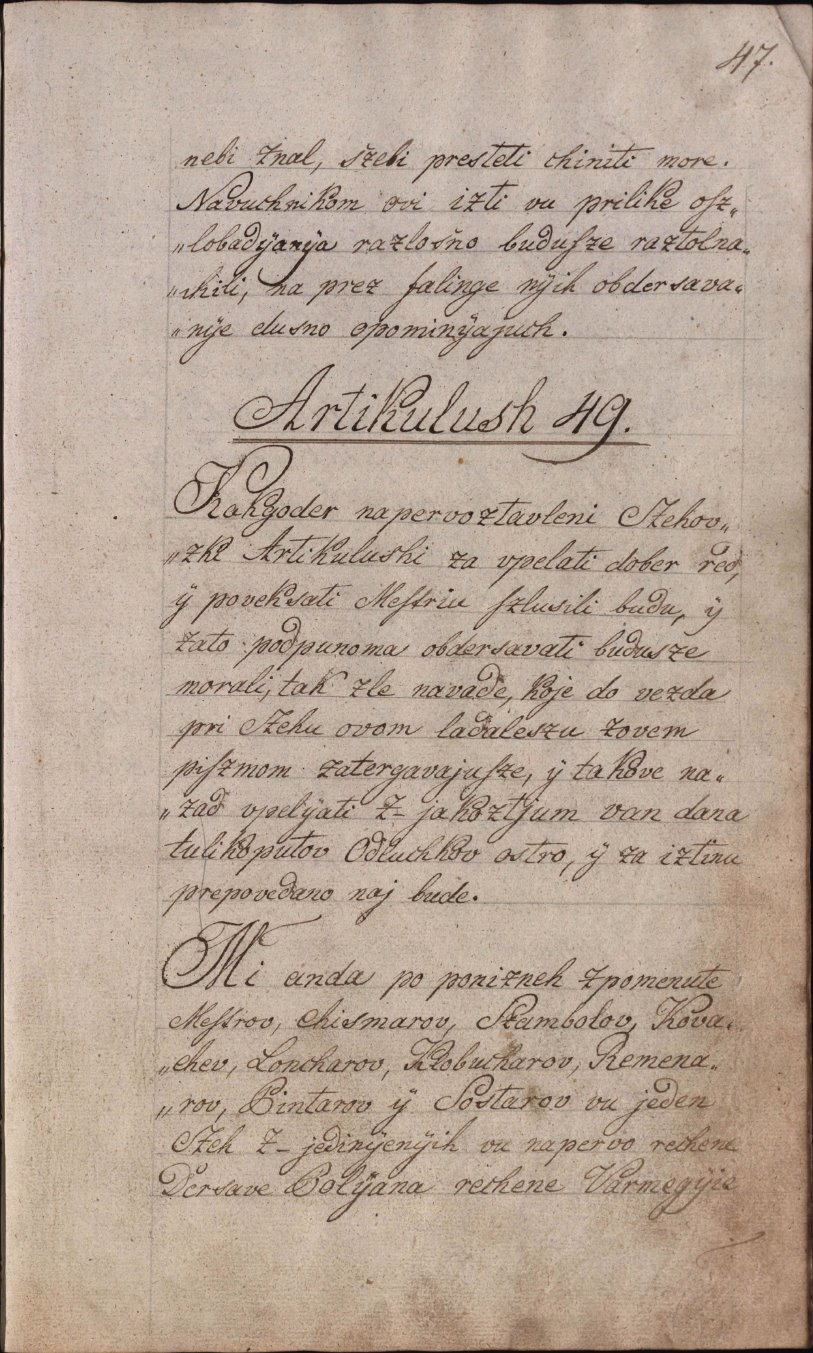 47.
nebi znal, szebi presteti chiniti more.
Navuchnikom ovi izti vu prilike osz„
„lobadÿanÿa razlosno budusze raztolna„
„chili, na prez falinge nÿih obdersava„
„nÿe dusno opominÿajuch.
Artikulush 49.
Kakgoder napervoztavleni Czehov„
„zki Artikulushi za vpelati dober red,
ÿ poveksati Mestriu szlusili budu, ÿ
zato podpunoma obdersavati budusze
morali, tak zle navade, koje do vezda
pri Czehu ovom ladaleszu zovem
piszmom zatergavajusze, ÿ takove na„
„zad vpelÿati z- jakoztjum van dana
tulikoputov Odluchkov ostro, ÿ za iztinu
prepovedano naj bude.
Mi anda po poniznek zpomenute
Mestrov, Chismarov, Stambolov, Kova„
„chev, Loncharov, Klobucharov, Remena„
„rov, Pintarov ÿ Sostarov vu jeden
Czeh z- jedinÿenÿih vu napervo rechene
Dersave Bolÿana rechene Varmegÿie